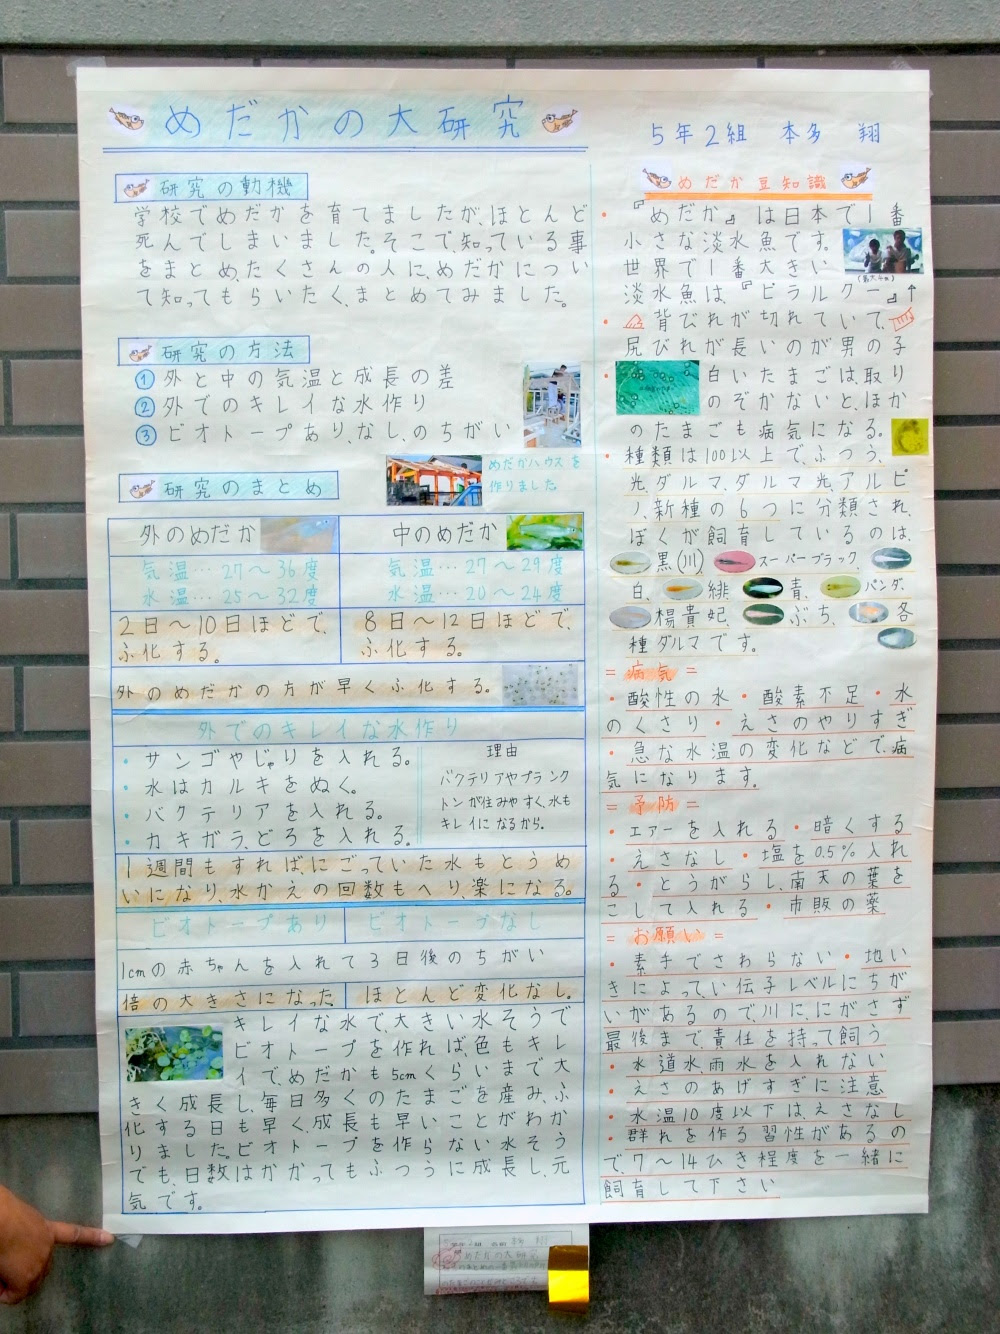 めだかの大研究
5年2組 本多 翔
研究の動機
学校でめだかを育てましたが、ほとんど
死んでしまいました。そこで、知っている事
をまとめ、たくさんの人に、めだかについ
て知ってもらいたく、まとめてみました。
研究の方法
① 外と中の気温と成長の差
② 外でのキレイな水作り
③ ビオトープあり、なし、のちがい
めだかハウスを
作りました
研究のまとめ
外のめだか
中のめだか
気温…27〜36度
水温…25〜32度
気温…27〜29度
水温…20〜24度
2日〜10日ほどで、
ふ化する。
8日〜12日ほどで、
ふ化する。
外のめだかの方が早くふ化する。
外でのキレイな水作り
・サンゴやじゃりを入れる。
・水はカルキをぬく。
・バクテリアを入れる。
・カキガラ、どろを入れる。
理由
バクテリアやプランク
トンが住みやすく、水も
キレイになるから。
1週間もすれば、にごっていた水もとうめ
いになり、水かえの回数もへり、楽になる。
ビオトープあり
ビオトープなし
1cmの赤ちゃんを入れて3日後のちがい
倍の大きさになった
ほとんど変化なし。
キレイな水で、大きい水そうで
ビオトープを作れば、色もキレ
イで、めだかも5cmくらいまで大
きく成長し、毎日多くのたまごを産み、ふ
化する日も早く、成長も早いことがわか
りました。ビオトープを作らない水そう
でも、日数はかかってもふつうに成長し、元
気です。
めだか豆知識
・『めだか』は日本で1番
小さな淡水魚です。
世界で1番大きい
淡水魚は、『ピラルクー』↑
・背びれが切れていて、
尻びれが長いのが男の子
・白いたまごは、取り
のぞかないと、ほか
のたまごも病気になる。
・種類は100以上で、ふつう、
光、ダルマ、ダルマ光、アルビ
ノ、新種の6つに分類され、
ぼくが飼育しているのは、
黒(川) スーパーブラック、
白、緋 青、パンダ、
楊貴妃、ぶち、各
種ダルマです。
=病気=
・酸性の水・酸素不足・水
のくさり・えさのやりすぎ
・急な水温の変化などで、病
気になります。
=予防=
・エアーを入れる・暗くする
・えさなし・塩を0.5%入れ
る・とうがらし、南天の葉を
こして入れる・市販の薬
=お願い=
・素手でさわらない・地い
きによって、い伝子レベルにちが
いがあるので、川に、にがさず
最後まで、責任を持って飼う
・水道水、雨水を入れない
・えさのあげすぎに注意
・水温10度以下は、えさなし
・群れを作る習性があるの
で、7〜14ひき程度を一緒に
飼育して下さい